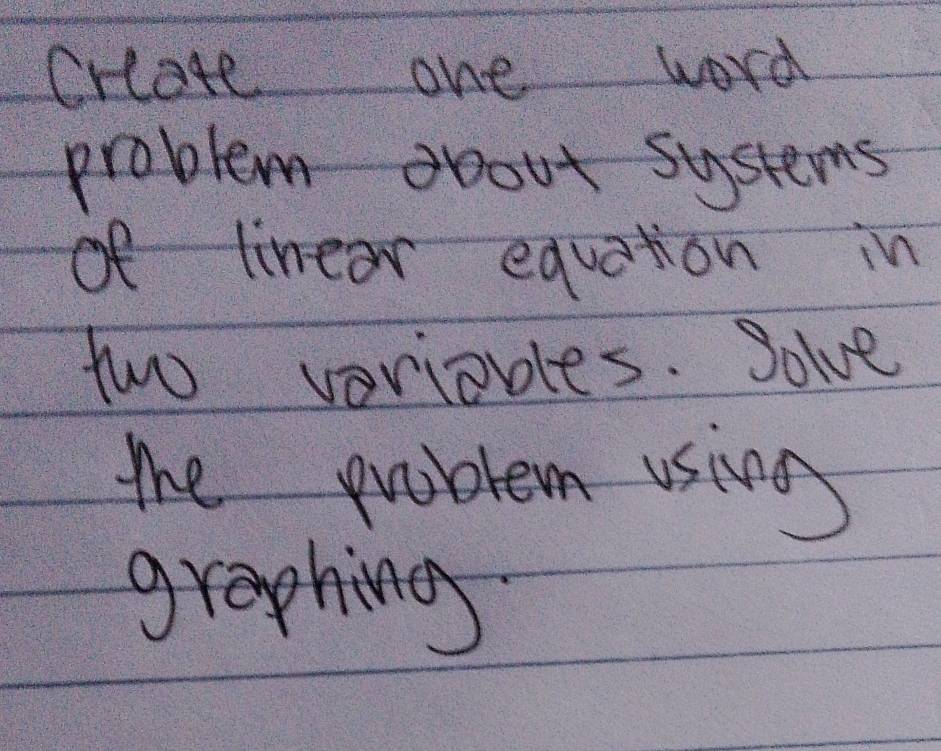 Create one word
problem about systems
of linear equation in
two variables. Solve
the problem using
graphing.